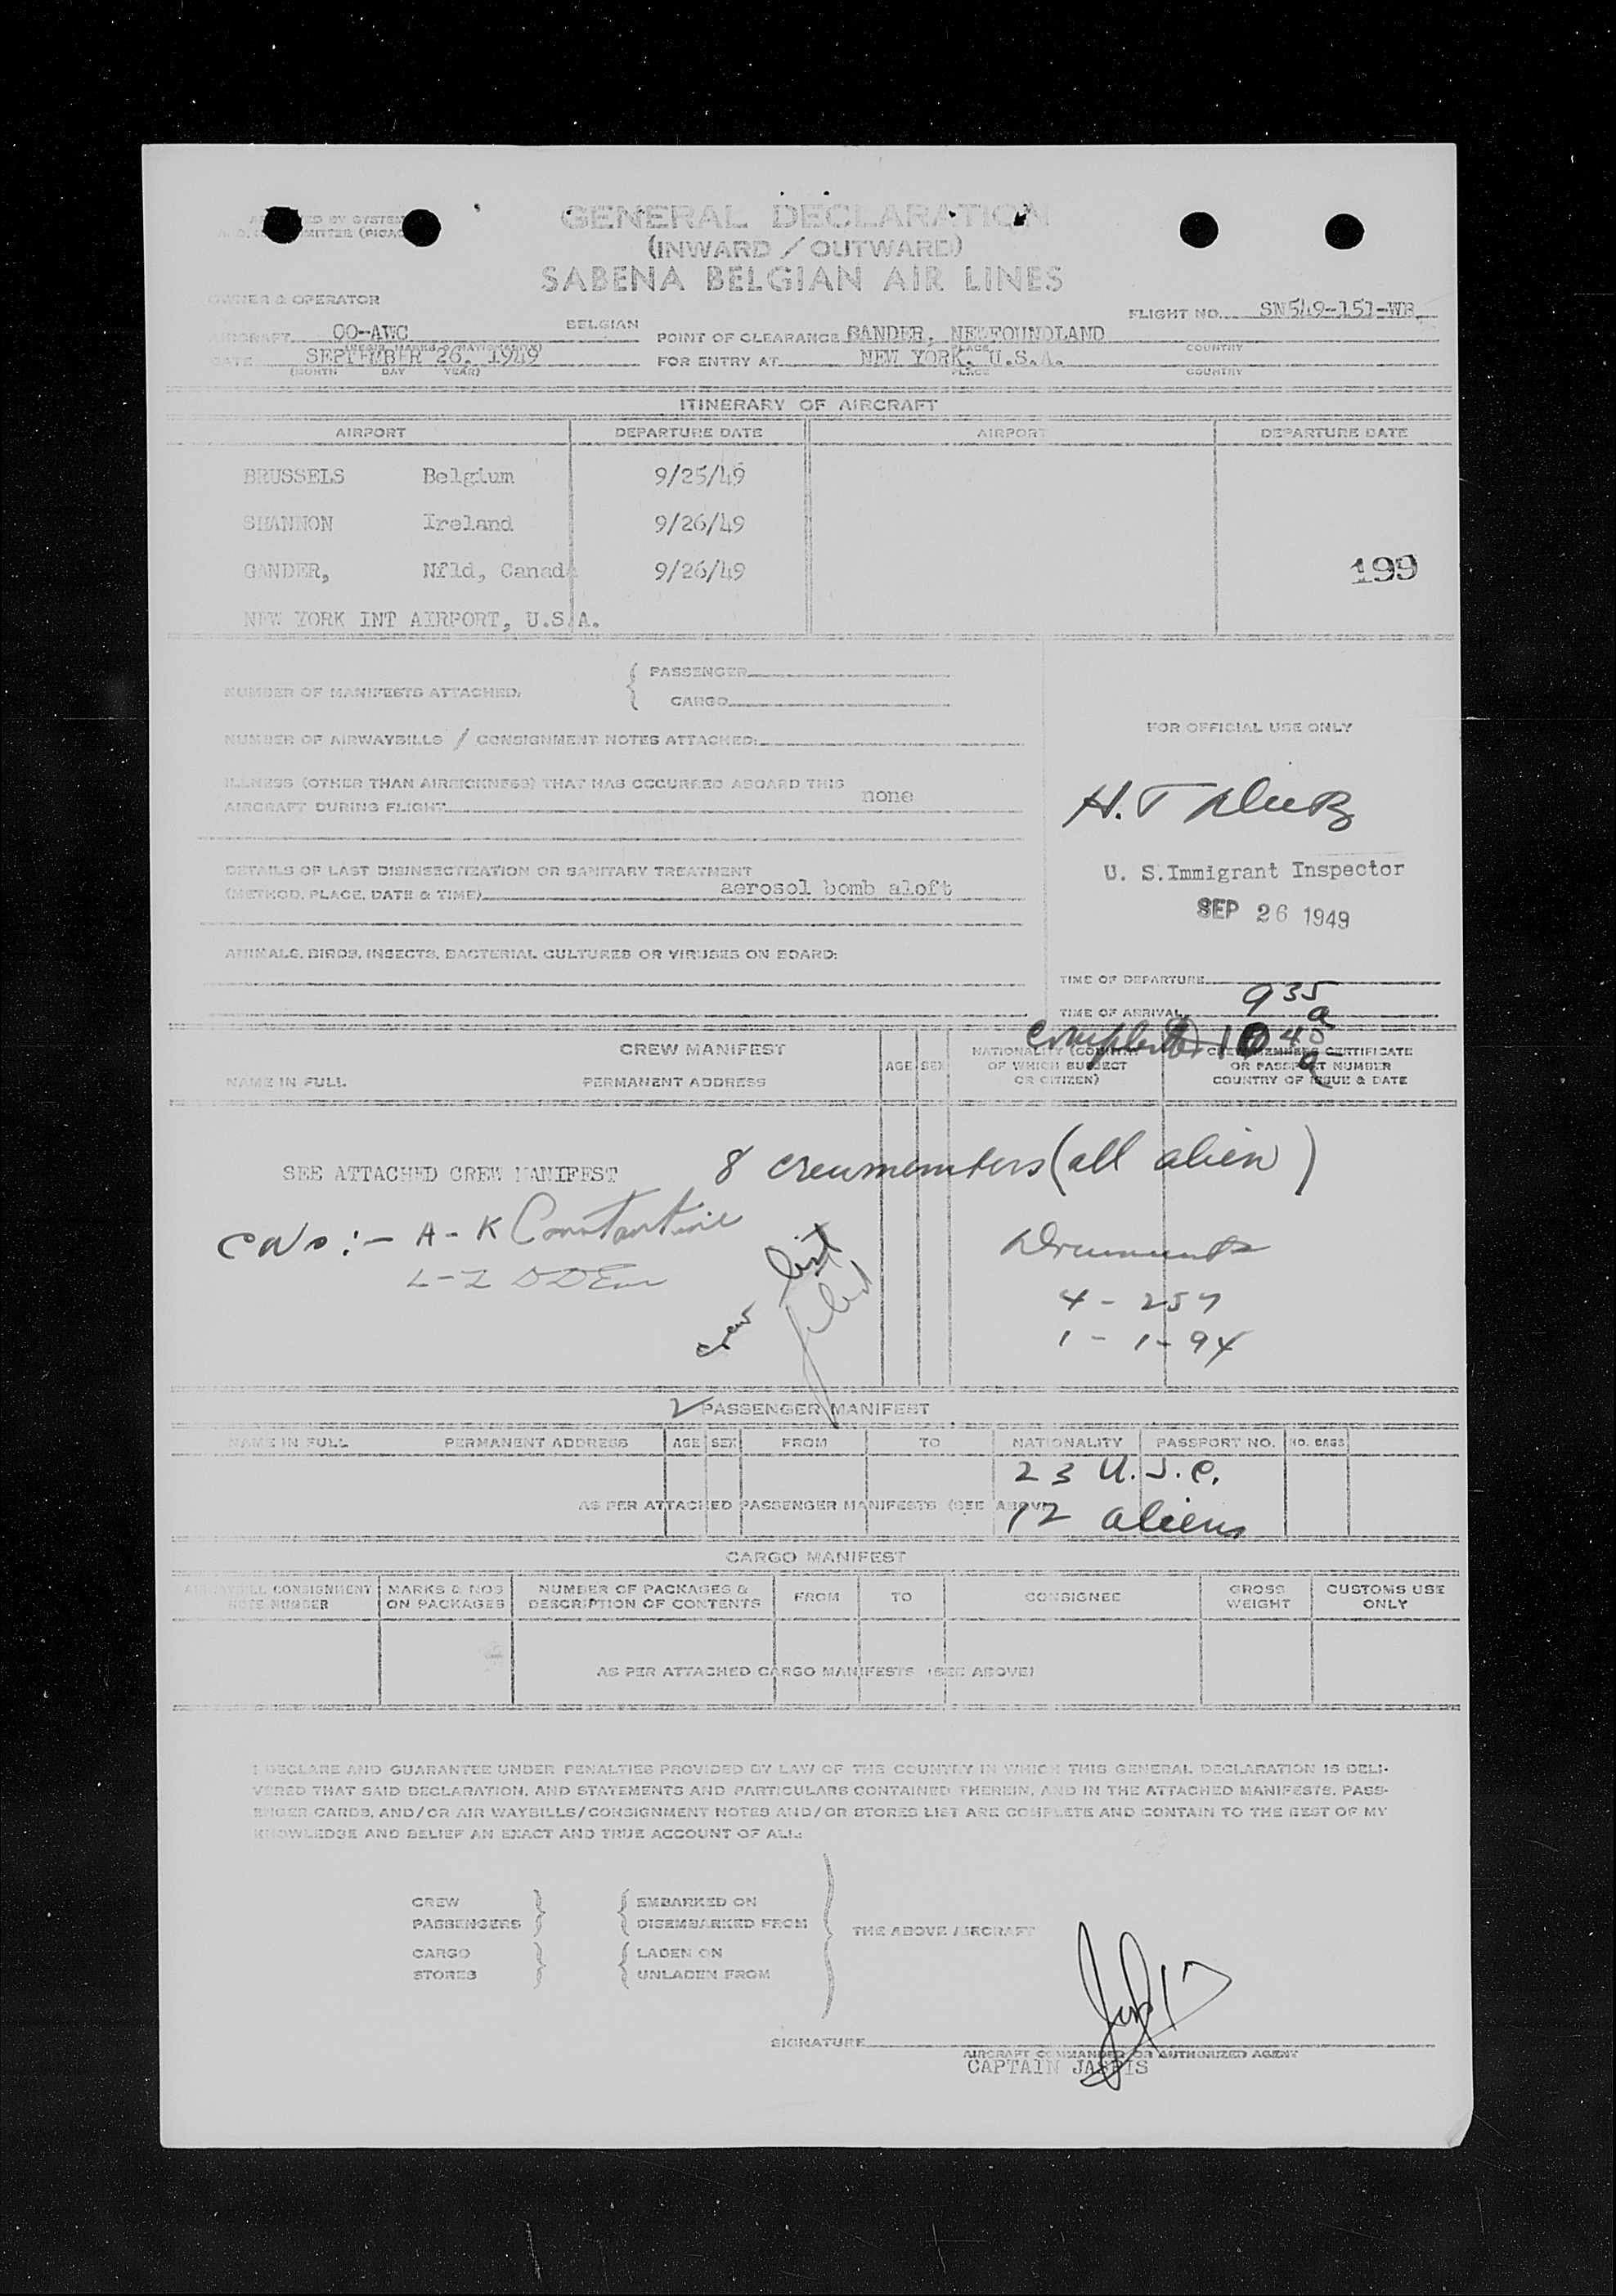 GENERAL DECLARATION
(INWARD / OUTWARD)
SABENA BELGIAN AIR LINES
OWNER & OPERATOR
FLIGHT NO. SN549-151-WB
AIRCRAFT OO-AWC BELGIAN
POINT OF CLEARANCE GANDER, NEWFOUNDLAND
(REGIS. MARKS & NATIONALITY) PLACE COUNTRY
DATE SEPTEMBER 26, 1949
FOR ENTRY AT NEW YORK, U.S.A.
(MONTH DAY YEAR) PLACE COUNTRY
ITINERARY OF AIRCRAFT
AIRPORT DEPARTURE DATE AIRPORT DEPARTURE DATE
BRUSSELS Belgium 9/25/49
SHANNON Ireland 9/26/49
GANDER, Nfld, Canada 9/26/49
199
NEW YORK INT AIRPORT, U.S.A.
NUMBER OF MANIFESTS ATTACHED: { PASSENGER
CARGO
NUMBER OF AIRWAYBILLS / CONSIGNMENT NOTES ATTACHED:
ILLNESS (OTHER THAN AIRSICKNESS) THAT HAS OCCURRED ABOARD THIS
AIRCRAFT DURING FLIGHT none
DETAILS OF LAST DISINSECTIZATION OR SANITARY TREATMENT
(METHOD, PLACE, DATE & TIME) aerosol bomb aloft
ANIMALS, BIRDS, INSECTS, BACTERIAL CULTURES OR VIRUSES ON BOARD:
FOR OFFICIAL USE ONLY
H. T
U. S. Immigrant Inspector
SEP 26 1949
TIME OF DEPARTURE
TIME OF ARRIVAL 935 a
completed 1040 a
CREW MANIFEST
NAME IN FULL PERMANENT ADDRESS AGE SEX
NATIONALITY (COUNTRY
OF WHICH SUBJECT
OR CITIZEN)
CREW MEMBERS CERTIFICATE
OR PASSPORT NUMBER
COUNTRY OF ISSUE & DATE
SEE ATTACHED CREW MANIFEST 8 crewmembers (all alien)
A - K Constantine
L - Z
crew list filed
Documents
4 - 257
1 - 1-94
2 PASSENGER MANIFEST
NAME IN FULL PERMANENT ADDRESS AGE SEX FROM TO NATIONALITY PASSPORT NO. NO. BAGS
23 U.S.C.
AS PER ATTACHED PASSENGER MANIFESTS (SEE ABOVE)
12 aliens
CARGO MANIFEST
AIRWAYBILL CONSIGNMENT
NOTE NUMBER
MARKS & NOS
ON PACKAGES
NUMBER OF PACKAGES &
DESCRIPTION OF CONTENTS
FROM TO CONSIGNEE
GROSS
WEIGHT
CUSTOMS USE
ONLY
AS PER ATTACHED CARGO MANIFESTS (SEE ABOVE)
I DECLARE AND GUARANTEE UNDER PENALTIES PROVIDED BY LAW OF THE COUNTRY IN WHICH THIS GENERAL DECLARATION IS DELI-
VERED THAT SAID DECLARATION, AND STATEMENTS AND PARTICULARS CONTAINED THEREIN, AND IN THE ATTACHED MANIFESTS, PASS-
ENGER CARDS, AND/OR AIR WAYBILLS/CONSIGNMENT NOTES AND/OR STORES LIST ARE COMPLETE AND CONTAIN TO THE BEST OF MY
KNOWLEDGE AND BELIEF AN EXACT AND TRUE ACCOUNT OF ALL:
CREW EMBARKED ON
PASSENGERS DISEMBARKED FROM
THE ABOVE AIRCRAFT
CARGO LADEN ON
STORES UNLADEN FROM
SIGNATURE
AIRCRAFT COMMANDER OR AUTHORIZED AGENT
CAPTAIN